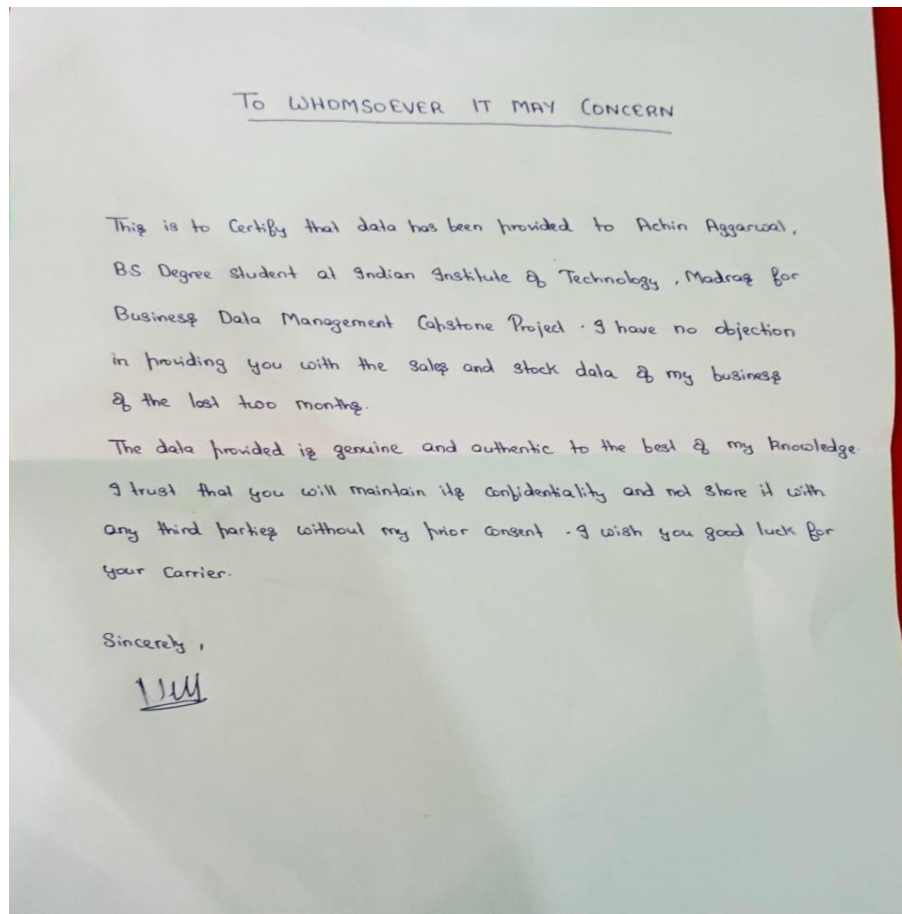 TO WHOMSOEVER IT MAY CONCERN
This is to Certify that data has been provided to Achin Aggarwal,
B.S. Degree student at Indian Institute of Technology, Madras for
Business Data Management Capstone Project. I have no objection
in providing you with the sales and stock data of my business
of the last two months.
The data provided is genuine and authentic to the best of my knowledge.
I trust that you will maintain its confidentiality and not share it with
any third parties without my prior consent. I wish you good luck for
your Carrier.
Sincerely,